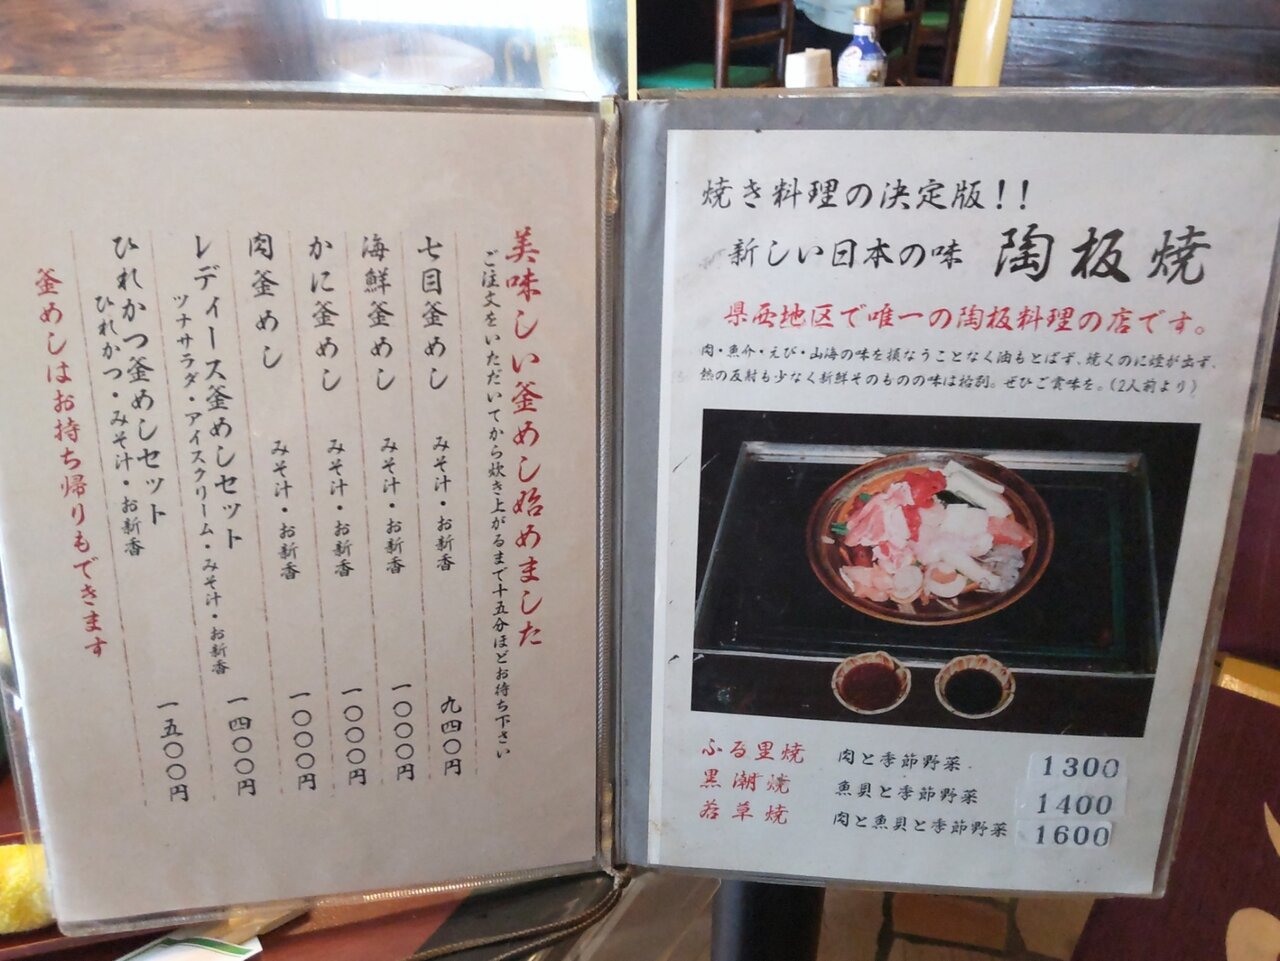 美味しい釜めし始めました
ご注文をいただいてから炊き上がるまで十五分ほどお待ち下さい
七目釜めし みそ汁・お新香 九四〇円
海鮮釜めし みそ汁・お新香 一〇〇〇円
かに釜めし みそ汁・お新香 一〇〇〇円
肉釜めし みそ汁・お新香 一〇〇〇円
レディース釜めしセット 一四〇〇円
ツナサラダ・アイスクリーム・みそ汁・お新香
ひれかつ釜めしセット 一五〇〇円
ひれかつ・みそ汁・お新香
釜めしはお持ち帰りもできます
焼き料理の決定版!!
新しい日本の味 陶板焼
県西地区で唯一の陶板料理の店です。
肉・魚介・えび・山海の味を損なうことなく油もとばず、焼くのに煙が出ず、
熱の反射も少なく新鮮そのものの味は格別。ぜひご賞味を。(2人前より)
ふる里焼 肉と季節野菜 1300
黒潮焼 魚貝と季節野菜 1400
若草焼 肉と魚貝と季節野菜 1600